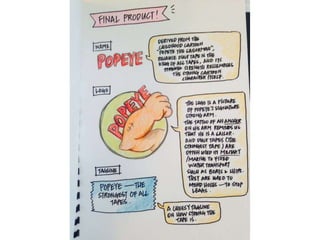 FINAL PRODUCT!
NAME
POPEYE
DERIVED FROM THE
CHILDHOOD CARTOON
"POPEYE THE SAILORMAN",
BECAUSE DUCT TAPE IS THE
KING OF ALL TAPES, AND ITS
STRENGTH RESEMBLES
THE STRONG CARTOON
CHARACTER
LOGO
POPEYE
THE LOGO IS A PICTURE
OF POPEYE'S SIGNATURE
STRONG ARM.
THE TATTOO OF AN ANCHOR
ON HIS ARM REMINDS US
THAT HE IS A SAILOR -
AND DUCT TAPES (THE
STRONGEST TAPE) ARE
OFTEN USED IN
/MARINE TO FIXED
WATER TRANSPORT
SUCH AS BOATS & SHIPS.
THEY ARE USED TO
MEND HOLES — TO STOP
LEAKS.
TAGLINE
POPEYE — THE
STRONGEST OF ALL
TAPES.
A CHEESY TAGLINE
ON HOW STRONG THE
TAPE IS.